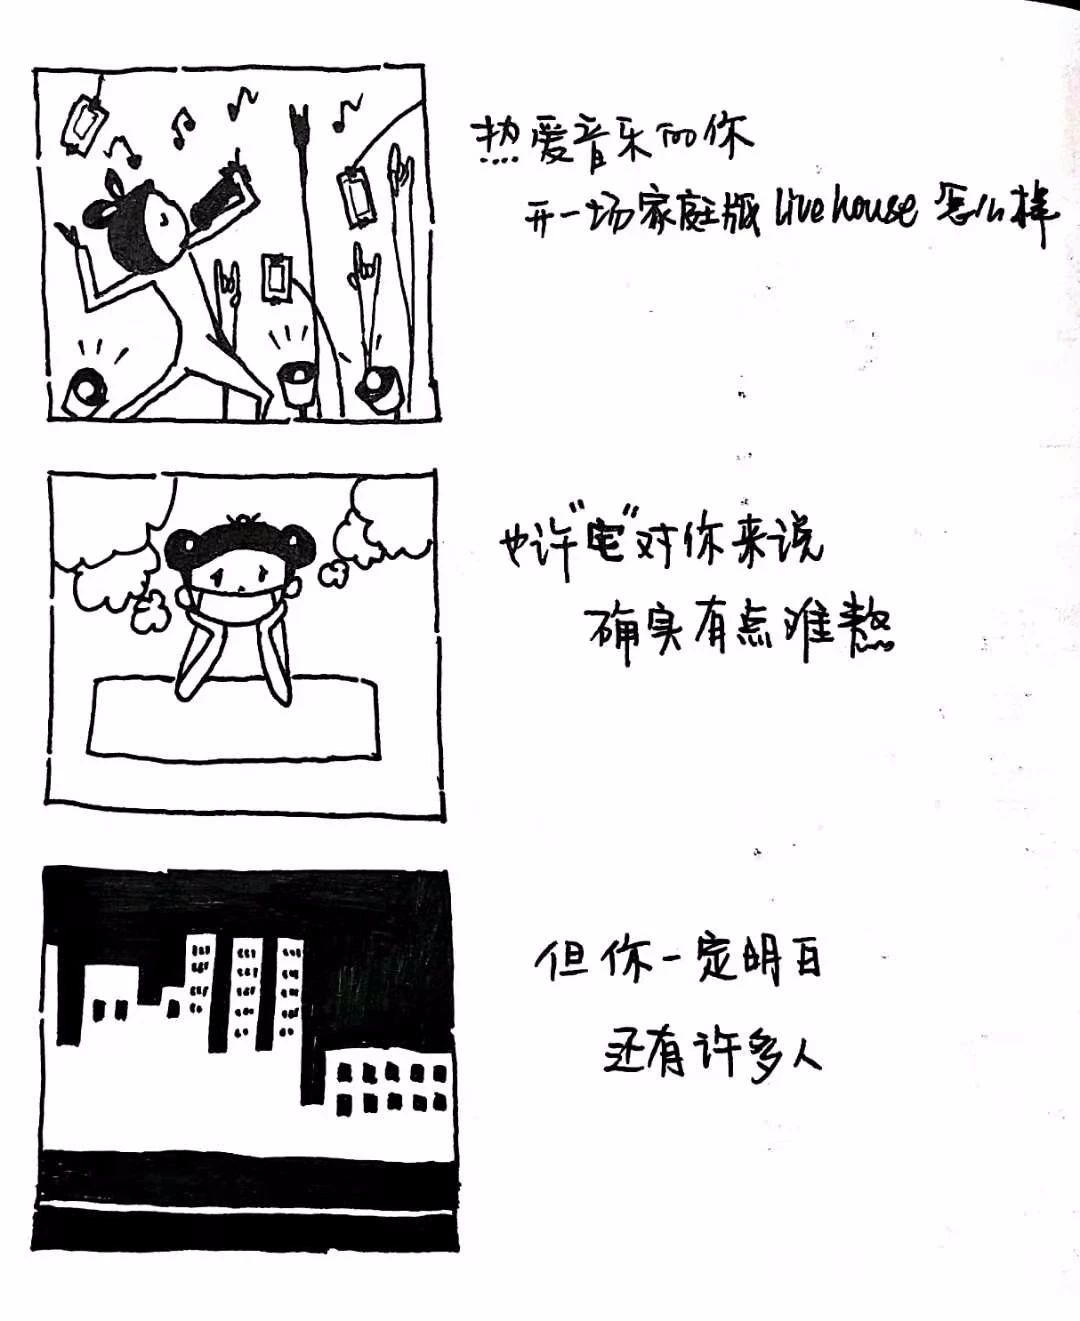 热爱音乐的你
开一场家庭版livehouse怎么样
也许"宅"对你来说
确实有点难熬
但你一定明白
还有许多人